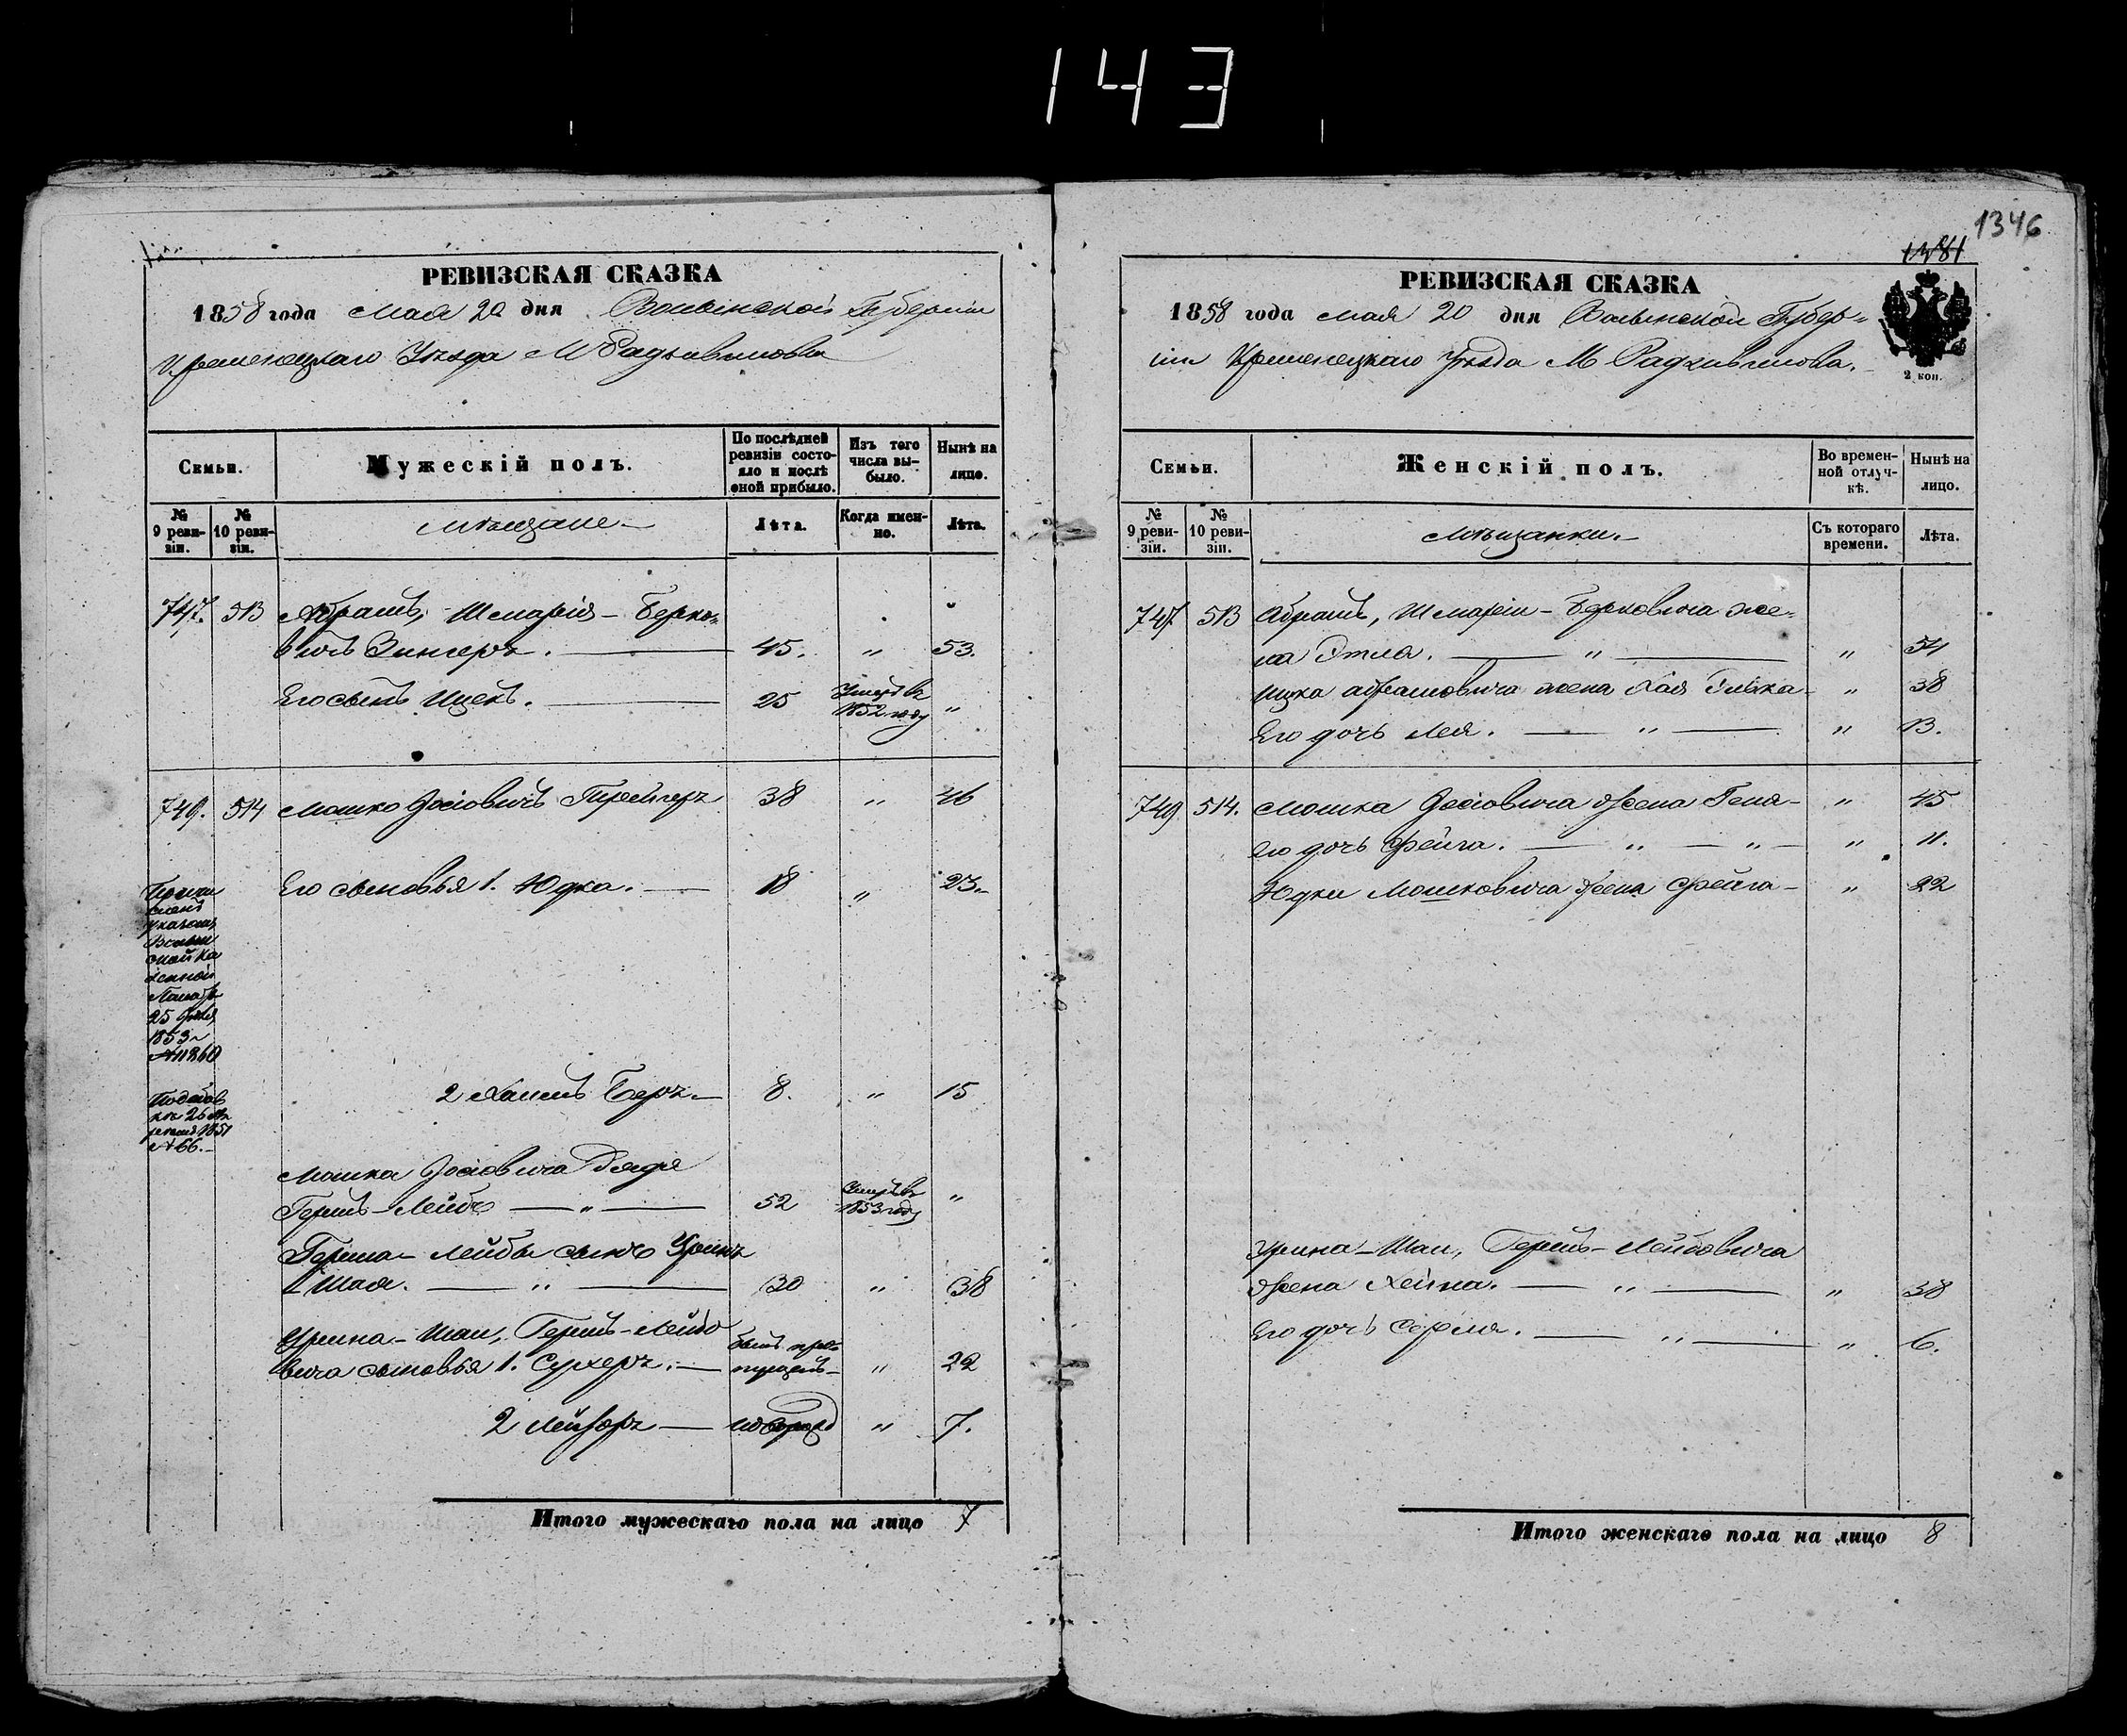 143
РЕВИЗСКАЯ СКАЗКА
1858 года Мая 20 дня Волынской Губерніи
Кременецкаго Уѣзда М Радзивилова
Семьи.
Мужескій полъ.
По послѣдней ревизіи состояло и послѣ оной прибыло.
Изъ того числа выбыло.
Нынѣ на лицо.
№ 9 ревизіи.
№ 10 ревизіи.
Мѣщане
Лѣта.
Когда именно.
Лѣта.
747. 513 Абрамъ, Шмарія - Берко-
вичъ Зингеръ. 45. " 53.
Его сынъ Ицекъ. 25 Умеръ въ 1852 году "
749. 514 Мошко Іосіовичъ 38 " 46
Его сыновья 1. Юдка. 18 " 23
25
1853
2 Хаимъ Беръ 8. " 15
26
1851
№ 66.
Мошка Іосіовича дядя
Гершъ-Лейба " 52 Умеръ въ 1853 году "
Герша-Лейбы сынъ
Шая. " 30 " 38
Шаи, Гершъ-Лейбо
вича сыновья 1. Сухеръ. былъ пропущенъ " 22
2 Лейзоръ " 7.
Итого мужескаго пола на лицо 7
1346
1381
РЕВИЗСКАЯ СКАЗКА
1858 года мая 20 дня Волынской Губер-
ніи Кременецкаго уѣзда М Радзивилова.
2 коп.
Семьи.
Женскій полъ.
Во временной отлучкѣ.
Нынѣ на лицо.
№ 9 ревизіи.
№ 10 ревизіи.
Мѣщанки.
Съ котораго времени.
Лѣта.
747 513 Абрамъ, Шмаріи - Берковича же-
на Этля. " " 54
Ицка Абрамовича жена Хая " 38
Его дочь Лея. " " 13.
749 514. Мошка Іосіовича жена Геня " 45
его дочь Фейга. " " " 11.
Юдки Мошковича жена Фейга " 22
Шаи, Гершъ-Лейбовича
жена Хейна. " " 38
Его дочь " " 6.
Итого женскаго пола на лицо 8